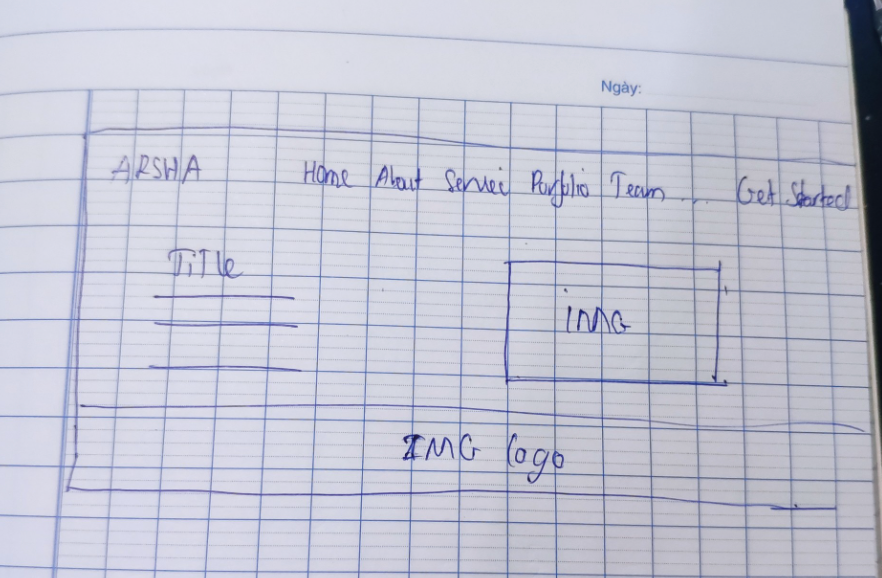 Ngày:
ARSHA Home About Servei Portfolio Team... Get Started
Title
IMG
IMG logo